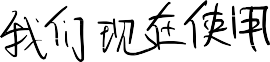 我们现在使用